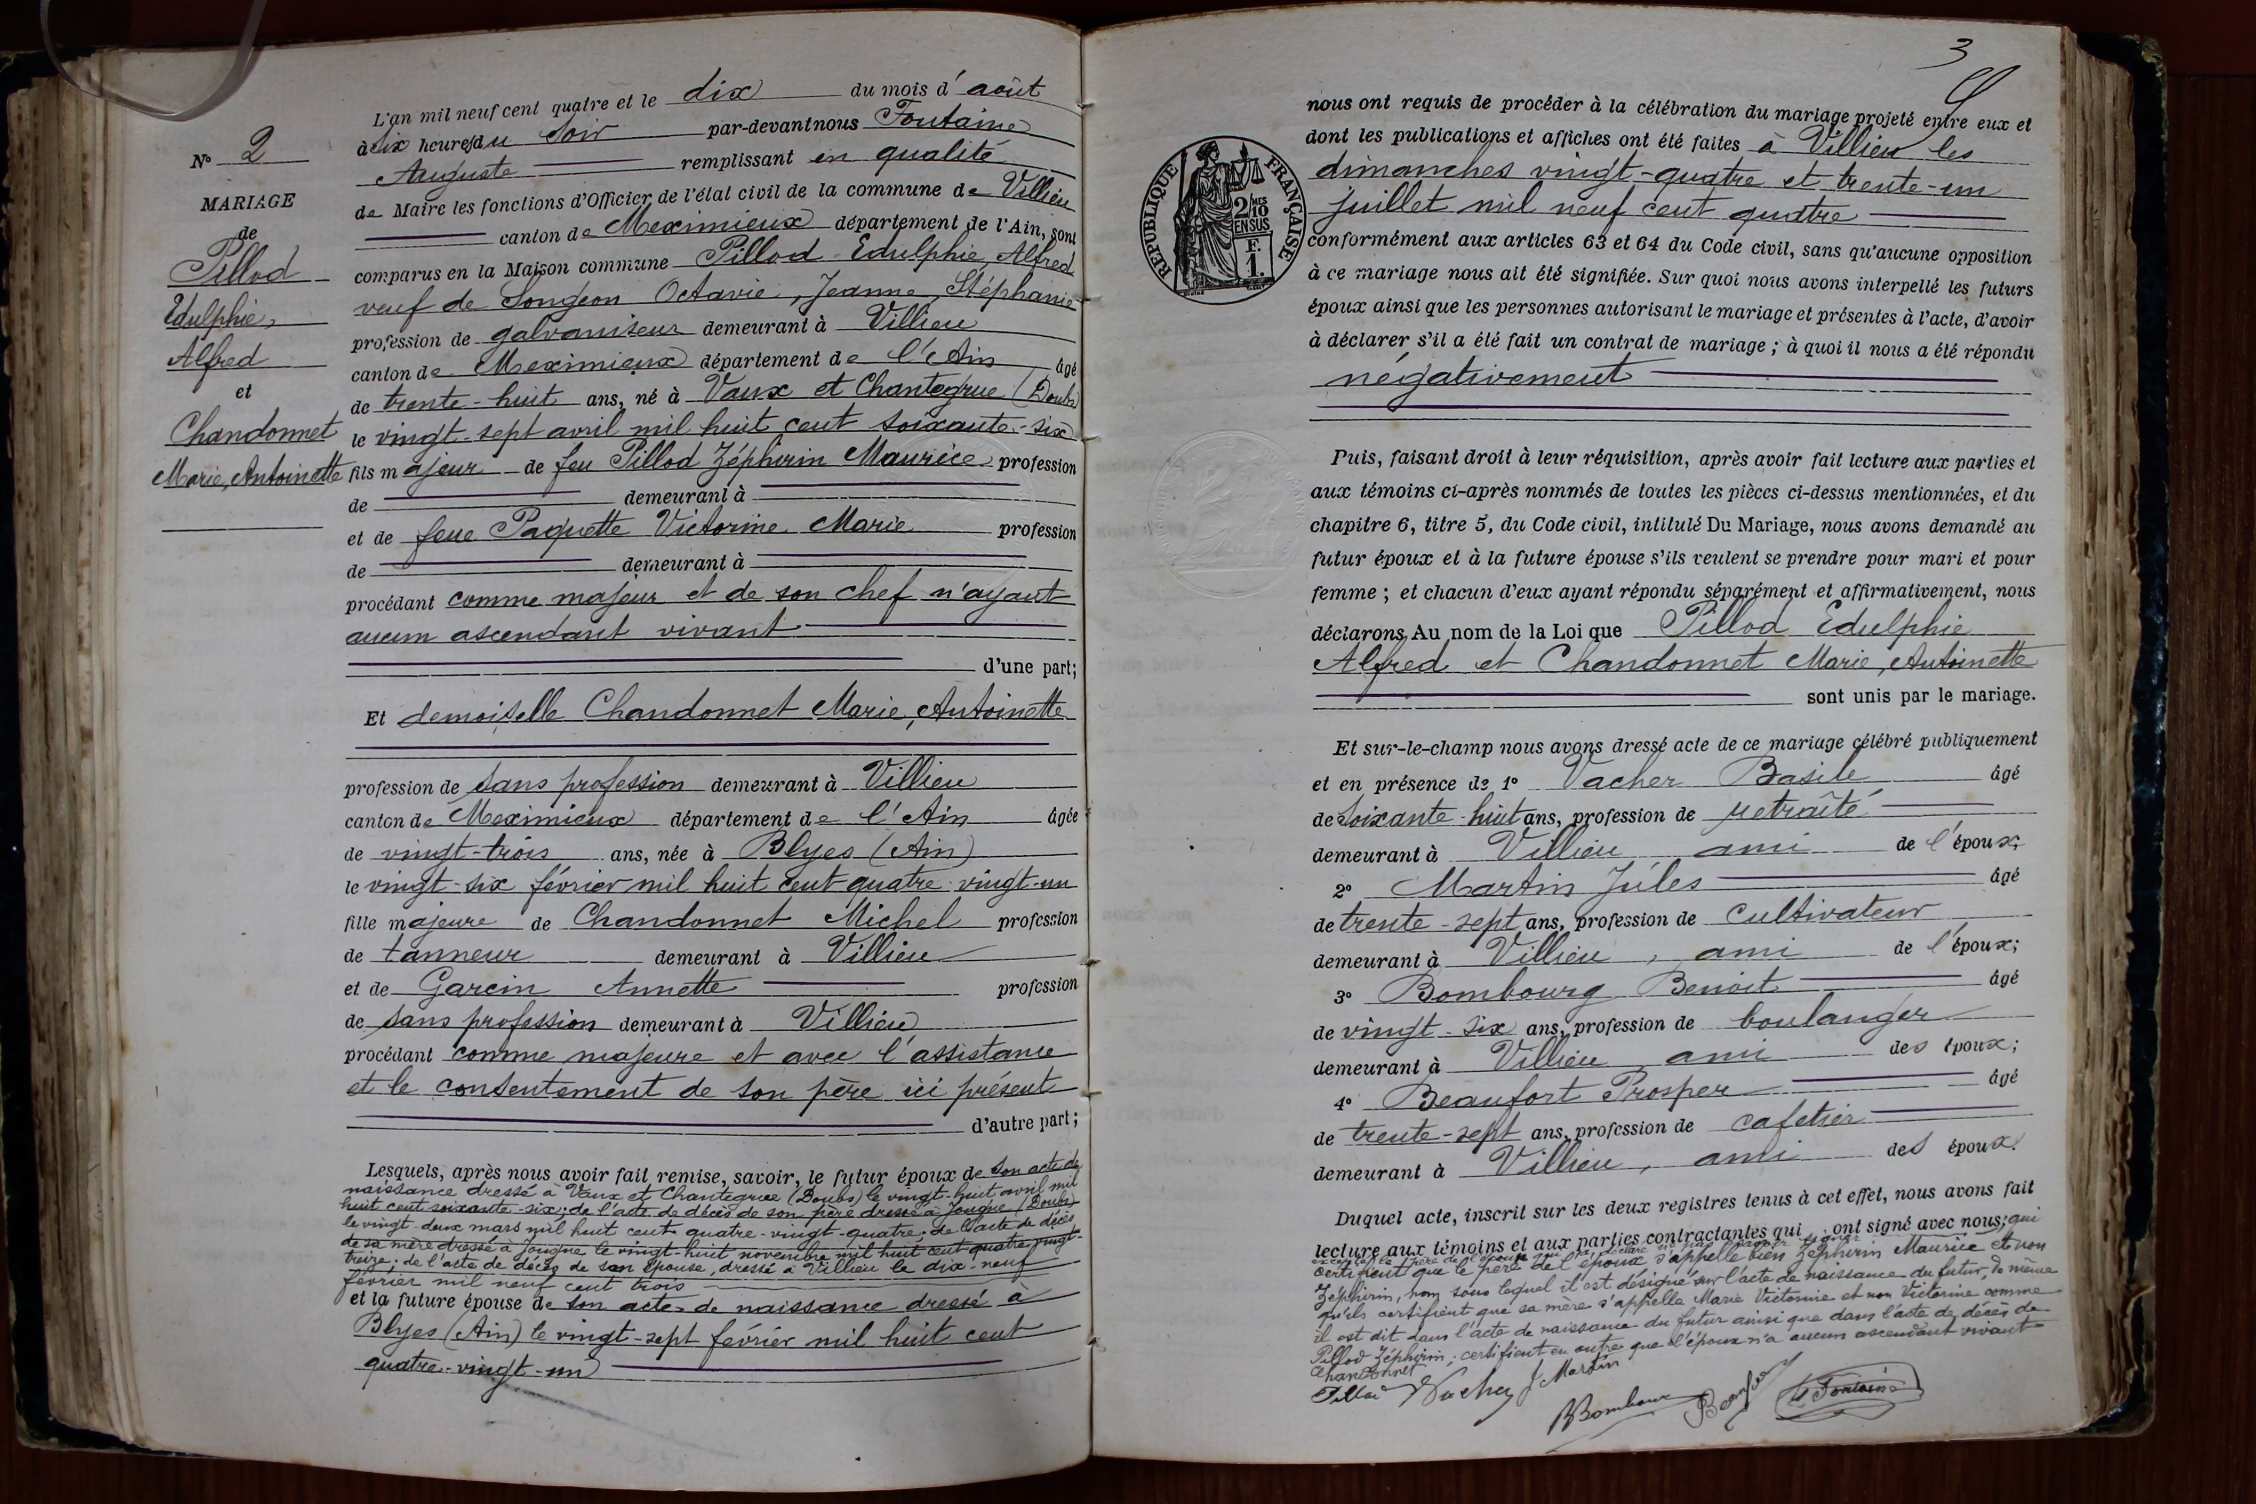 N° 2
MARIAGE
de
Pillod
Edulphie,
Alfred
et
Chandonnet
Marie, Antoinette
L'an mil neuf cent quatre et le dix du mois d'août
à six heures du soir par-devant nous Fontaine
Auguste remplissant en qualité
de Maire les fonctions d'Officier de l'état civil de la commune de Villieu
canton de Meximieux département de l'Ain, sont
comparus en la Maison commune Pillod Edulphie, Alfred
veuf de Songeon Octavie, Jeanne, Stéphanie
profession de galvaniseur demeurant à Villieu
canton de Meximieux département de l'Ain âgé
de trente-huit ans, né à Vaux et Chantegrue (Doubs)
le vingt-sept avril mil huit cent soixante-six
fils majeur de feu Pillod Zéphirin Maurice profession
de demeurant à
et de feue Paquette Victorine Marie profession
de demeurant à
procédant comme majeur et de son chef n'ayant
aucun ascendant vivant
d'une part;
Et demoiselle Chandonnet Marie, Antoinette
profession de sans profession demeurant à Villieu
canton de Meximieux département de l'Ain âgée
de vingt-trois ans, née à Blyes (Ain)
le vingt-six février mil huit cent quatre-vingt-un
fille majeure de Chandonnet Michel profession
de tanneur demeurant à Villieu
et de Garcin Annette profession
de sans profession demeurant à Villieu
procédant comme majeure et avec l'assistance
et le consentement de son père ici présent
d'autre part;
Lesquels, après nous avoir fait remise, savoir, le futur époux de son acte de
naissance dressé à Vaux et Chantegrue (Doubs) le vingt-huit avril mil
huit cent soixante-six; de l'acte de décès de son père dressé à Jougne (Doubs)
le vingt-deux mars mil huit cent quatre-vingt-quatre; de l'acte de décès
de sa mère dressé à Jougne le vingt-huit novembre mil huit cent quatre vingt-
treize; de l'acte de décès de son épouse, dressé à Villieu le dix-neuf
février mil neuf cent trois
et la future épouse de son acte de naissance dressé à
Blyes (Ain) le vingt-sept février mil huit cent
quatre-vingt-un
3
RÉPUBLIQUE FRANÇAISE
2/10 MES
EN SUS
F.
1.
nous ont requis de procéder à la célébration du mariage projeté entre eux et
dont les publications et affiches ont été faites à Villieu les
dimanches vingt-quatre et trente-un
juillet mil neuf cent quatre
conformément aux articles 63 et 64 du Code civil, sans qu'aucune opposition
à ce mariage nous ait été signifiée. Sur quoi nous avons interpellé les futurs
époux ainsi que les personnes autorisant le mariage et présentes à l'acte, d'avoir
à déclarer s'il a été fait un contrat de mariage; à quoi il nous a été répondu
négativement
Puis, faisant droit à leur réquisition, après avoir fait lecture aux parties et
aux témoins ci-après nommés de toutes les pièces ci-dessus mentionnées, et du
chapitre 6, titre 5, du Code civil, intitulé Du Mariage, nous avons demandé au
futur époux et à la future épouse s'ils veulent se prendre pour mari et pour
femme; et chacun d'eux ayant répondu séparément et affirmativement, nous
déclarons Au nom de la Loi que Pillod Edulphie
Alfred et Chandonnet Marie, Antoinette
sont unis par le mariage.
Et sur-le-champ nous avons dressé acte de ce mariage célébré publiquement
et en présence de 1° Vacher Basile âgé
de soixante-huit ans, profession de retraité
demeurant à Villieu ami de l'époux;
2° Martin Jules âgé
de trente-sept ans, profession de cultivateur
demeurant à Villieu, ami de l'époux;
3° Bombourg Benoit âgé
de vingt-six ans, profession de boulanger
demeurant à Villieu ami des époux;
4° Beaufort Prosper âgé
de trente-sept ans, profession de cafetier
demeurant à Villieu, ami des époux.
Duquel acte, inscrit sur les deux registres tenus à cet effet, nous avons fait
lecture aux témoins et aux parties contractantes qui ont signé avec nous; qui
certifient que le père de l'époux s'appelle bien Zéphirin Maurice et non
Zéphirin, nom sous lequel il est désigné sur l'acte de naissance du futur, de même
qu'ils certifient que sa mère s'appelle Marie Victorine et non Victorine comme
il est dit dans l'acte de naissance du futur ainsi que dans l'acte de décès de
Pillod Zéphirin; certifient en outre que l'époux n'a aucun ascendant vivant
Chandonnet
Pillod Vacher J Martin
B Bombourg Beaufort A Fontaine